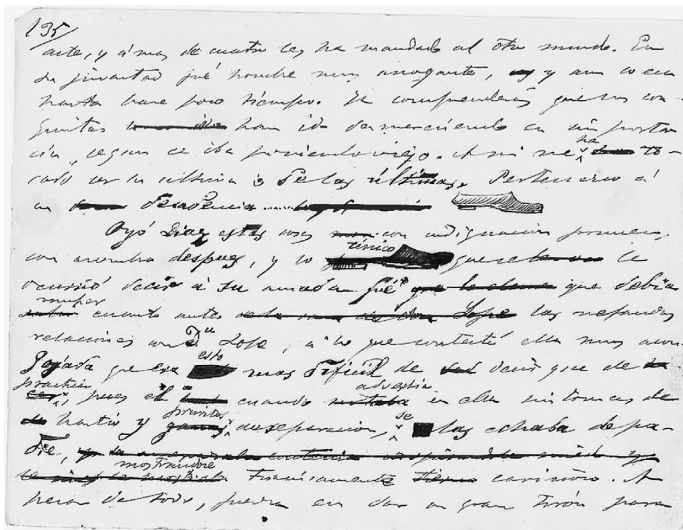 135
arte, y á mas de cuatro les ha mandado al otro mundo. En
su juventud fué hombre muy arrogante, y aun lo era
hasta hace poco tiempo. Ya comprenderás que sus con-
quistas han ido desmereciendo en importan
cia, segun se iba poniendo viejo. A mi me ha to-
cado ser la ultima ó de las últimas. Pertenezco á
su decadencia......
Oyó Diaz estas cosas con indignacion primero,
con asombro despues, y lo único que se le
ocurrió decir á su amada fué que debia
romper cuanto antes las nefandas
relaciones con D. Lope, a lo que contestó ella muy acon-
gojada que era esto mas dificil de decir que de
practicar, pues el cuando advertia en ella sintomas de
hastio y pruritos de separacion, se las echaba de pa-
dre, mostrandose
tiranicamente cariñoso. A
pesar de todo, fuerza era dar un gran tirón para